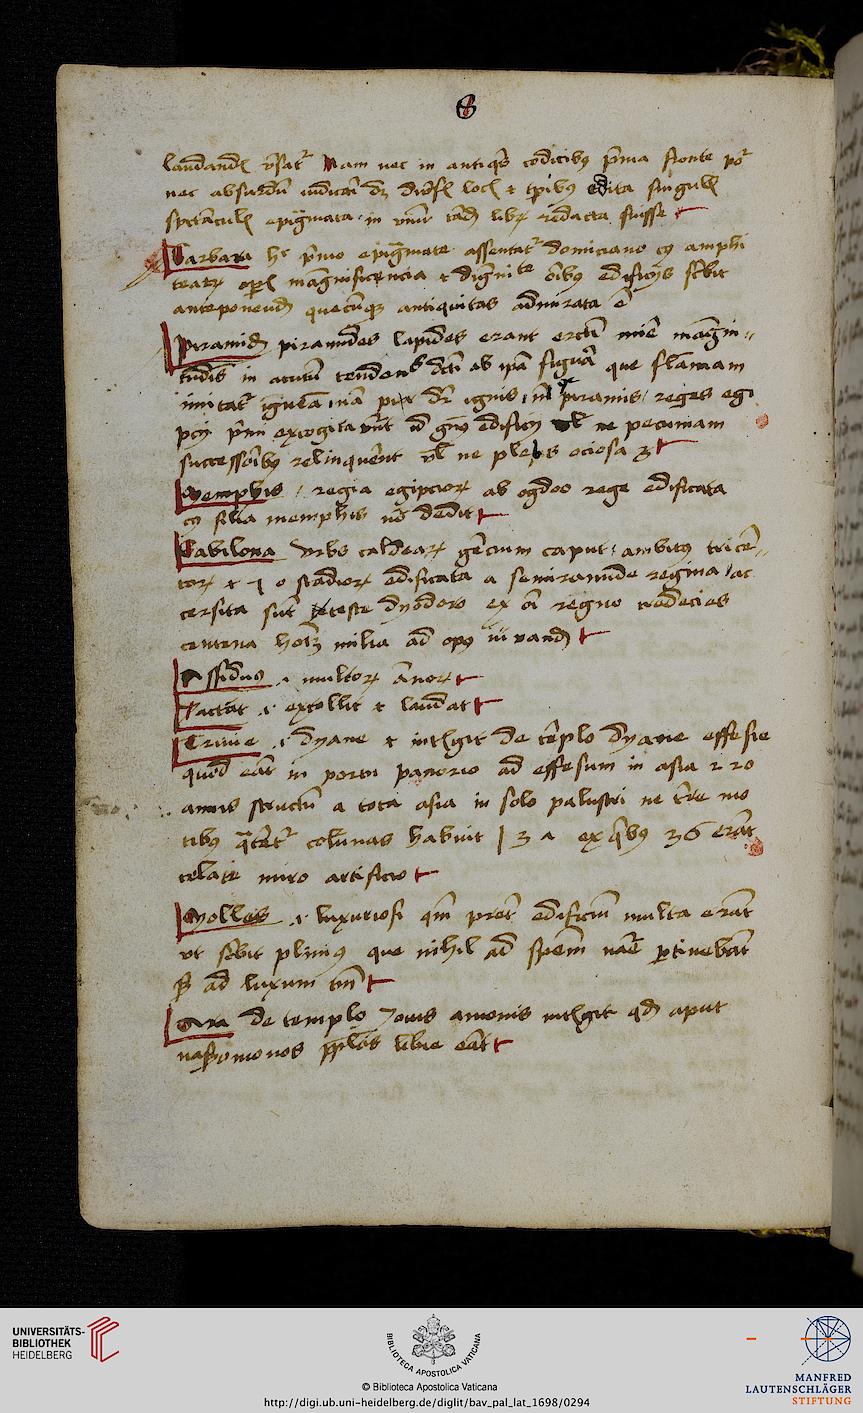 8
laudandis versatur Nam nec in antiquis codicibus prima fronte po
nec absurdum iudicari diversis locis et temporibus edita singulis
spectaculis epigrammata in unum librum redacta fuisse
Barbara hoc primo epigramate assentatur domiciano cuius amphi
teatrum operis magnificencia et dignitate omnibus edificijs scribit
anteponendum quecumque antiquitas admirata est
Piramidum piramides lapides erant mire magni
tudinis in acutum tendens ab ipsa figura que flamam
imitatur igneam nam pir dicitur ignis piramis reges egi
pcij primi excogitaverunt id genus edificij vel ne pecuniam
successoribus relinquerent vel ne plebs ociosa
Memphis regia egipciorum ab ogdoo rege edificata
cuius filia memphis dedit
Babilona urbs caldearum gencium caput ambitus tricen
torum et 70 stadiorum edificata a semiramide regina ac
cersita sunt teste dyodoro ex omni regno tredecies
centena hominum milia ad opus iuvandum
Assiduus i multorum annorum
Iactat i extollit et laudat
Trivie i dyane et intelligit de templo dyane effesie
quod erat in portu panorio ad effesum in asia 220
annis structum a tota asia in solo palustri ne terre mo
tibus columnas habuit 137 ex quibus 36 erant
celate miro artificio
Molles i luxuriosi quoniam preter edificium multa erant
ut scribit plinius que nihil ad spem pertinebant
sed ad luxum tantum
Ara de templo Jovis amonis intelligit quod aput
nasomonos populos libie erat
UNIVERSITÄTS-
BIBLIOTHEK
HEIDELBERG
BIBLIOTECA APOSTOLICA VATICANA
© Biblioteca Apostolica Vaticana
http://digi.ub.uni-heidelberg.de/diglit/bav_pal_lat_1698/0294
MANFRED
LAUTENSCHLÄGER
STIFTUNG